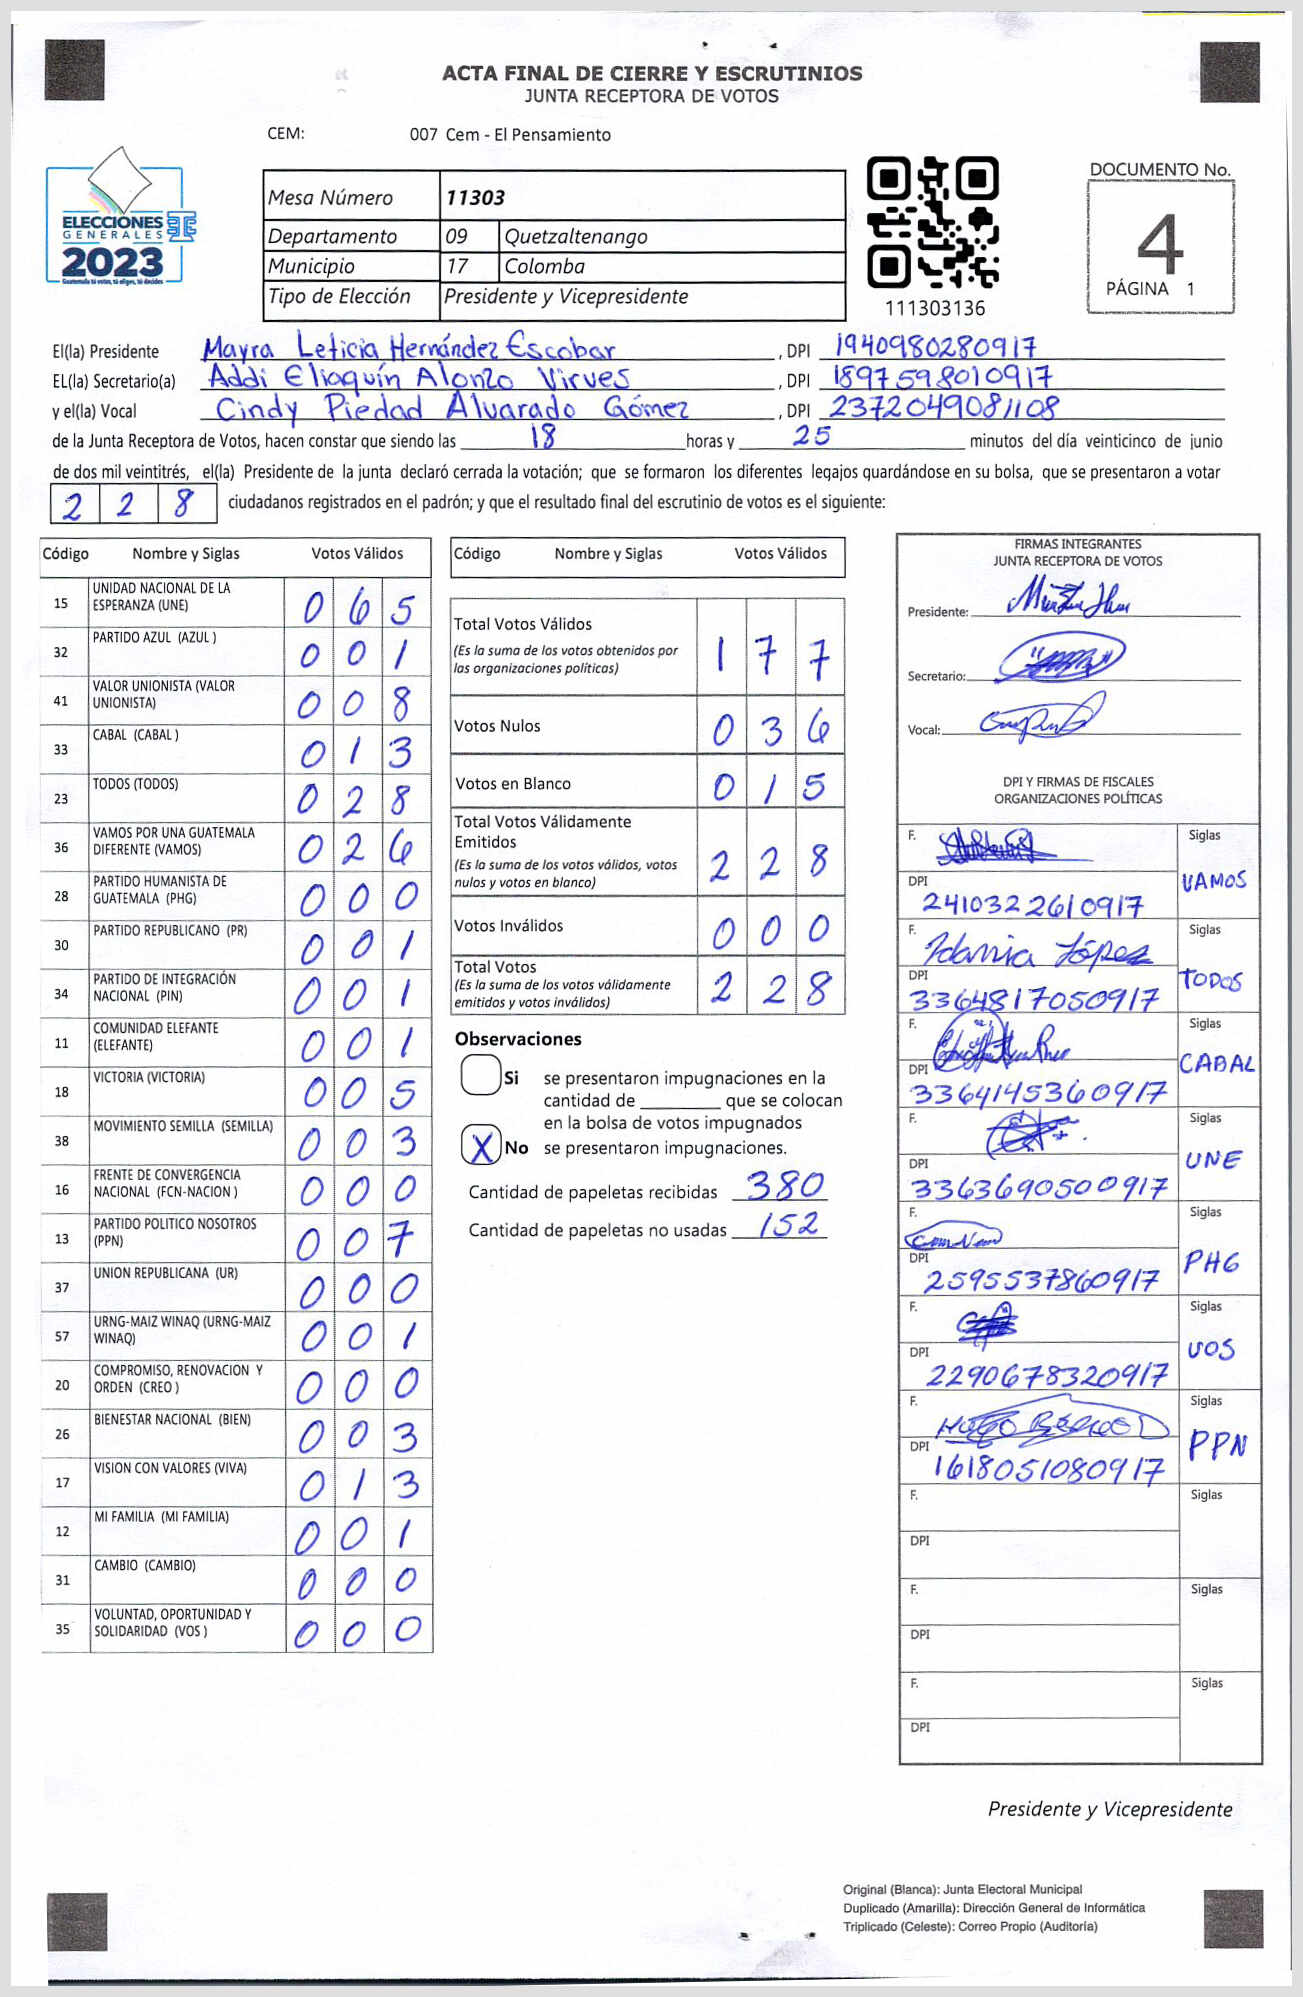 ACTA FINAL DE CIERRE Y ESCRUTINIOS
JUNTA RECEPTORA DE VOTOS
CEM: 007 Cem - El Pensamiento
ELECCIONES
GENERALES
2023
Guatemala tú votas, tú eliges, tú decides
Mesa Número 11303
Departamento 09 Quetzaltenango
Municipio 17 Colomba
Tipo de Elección Presidente y Vicepresidente
111303136
DOCUMENTO No.
4
PÁGINA 1
El(la) Presidente Mayra Leticia Hernández Escobar , DPI 1940980280917
EL(la) Secretario(a) Addi Eliaquín Alonzo Virves , DPI 1897598010917
y el(la) Vocal Cindy Piedad Alvarado Gómez , DPI 2372049081108
de la Junta Receptora de Votos, hacen constar que siendo las 18 horas y 25 minutos del día veinticinco de junio
de dos mil veintitrés, el(la) Presidente de la junta declaró cerrada la votación; que se formaron los diferentes legajos quardándose en su bolsa, que se presentaron a votar
2 2 8 ciudadanos registrados en el padrón; y que el resultado final del escrutinio de votos es el siguiente:
Código Nombre y Siglas Votos Válidos
15 UNIDAD NACIONAL DE LA ESPERANZA (UNE) 0 6 5
32 PARTIDO AZUL (AZUL ) 0 0 1
41 VALOR UNIONISTA (VALOR UNIONISTA) 0 0 8
33 CABAL (CABAL ) 0 1 3
23 TODOS (TODOS) 0 2 8
36 VAMOS POR UNA GUATEMALA DIFERENTE (VAMOS) 0 2 6
28 PARTIDO HUMANISTA DE GUATEMALA (PHG) 0 0 0
30 PARTIDO REPUBLICANO (PR) 0 0 1
34 PARTIDO DE INTEGRACIÓN NACIONAL (PIN) 0 0 1
11 COMUNIDAD ELEFANTE (ELEFANTE) 0 0 1
18 VICTORIA (VICTORIA) 0 0 5
38 MOVIMIENTO SEMILLA (SEMILLA) 0 0 3
16 FRENTE DE CONVERGENCIA NACIONAL (FCN-NACION ) 0 0 0
13 PARTIDO POLITICO NOSOTROS (PPN) 0 0 7
37 UNION REPUBLICANA (UR) 0 0 0
57 URNG-MAIZ WINAQ (URNG-MAIZ WINAQ) 0 0 1
20 COMPROMISO, RENOVACION Y ORDEN (CREO ) 0 0 0
26 BIENESTAR NACIONAL (BIEN) 0 0 3
17 VISION CON VALORES (VIVA) 0 1 3
12 MI FAMILIA (MI FAMILIA) 0 0 1
31 CAMBIO (CAMBIO) 0 0 0
35 VOLUNTAD, OPORTUNIDAD Y SOLIDARIDAD (VOS ) 0 0 0
Código Nombre y Siglas Votos Válidos
Total Votos Válidos
(Es la suma de los votos obtenidos por las organizaciones políticas) 1 7 7
Votos Nulos 0 3 6
Votos en Blanco 0 1 5
Total Votos Válidamente Emitidos
(Es la suma de los votos válidos, votos nulos y votos en blanco) 2 2 8
Votos Inválidos 0 0 0
Total Votos
(Es la suma de los votos válidamente emitidos y votos inválidos) 2 2 8
Observaciones
Si se presentaron impugnaciones en la
cantidad de ________ que se colocan
en la bolsa de votos impugnados
X No se presentaron impugnaciones.
Cantidad de papeletas recibidas 380
Cantidad de papeletas no usadas 152
FIRMAS INTEGRANTES
JUNTA RECEPTORA DE VOTOS
Presidente:
Secretario:
Vocal:
DPI Y FIRMAS DE FISCALES
ORGANIZACIONES POLÍTICAS
F. Siglas
DPI VAMOS
2410322610917
F. Idania López Siglas
DPI TODOS
3364817050917
F. Siglas
DPI CABAL
3364145360917
F. Siglas
DPI UNE
3363690500917
F. Siglas
DPI PHG
2595537860917
F. Siglas
DPI VOS
2290678320917
F. Siglas
DPI PPN
1618051080917
F. Siglas
DPI
F. Siglas
DPI
F. Siglas
DPI
Presidente y Vicepresidente
Original (Blanca): Junta Electoral Municipal
Duplicado (Amarilla): Dirección General de Informática
Triplicado (Celeste): Correo Propio (Auditoría)